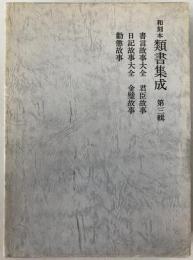 和刻本
類書集成 第三輯
書言故事大全 君臣故事
日記故事大全 金璧故事
勸懲故事